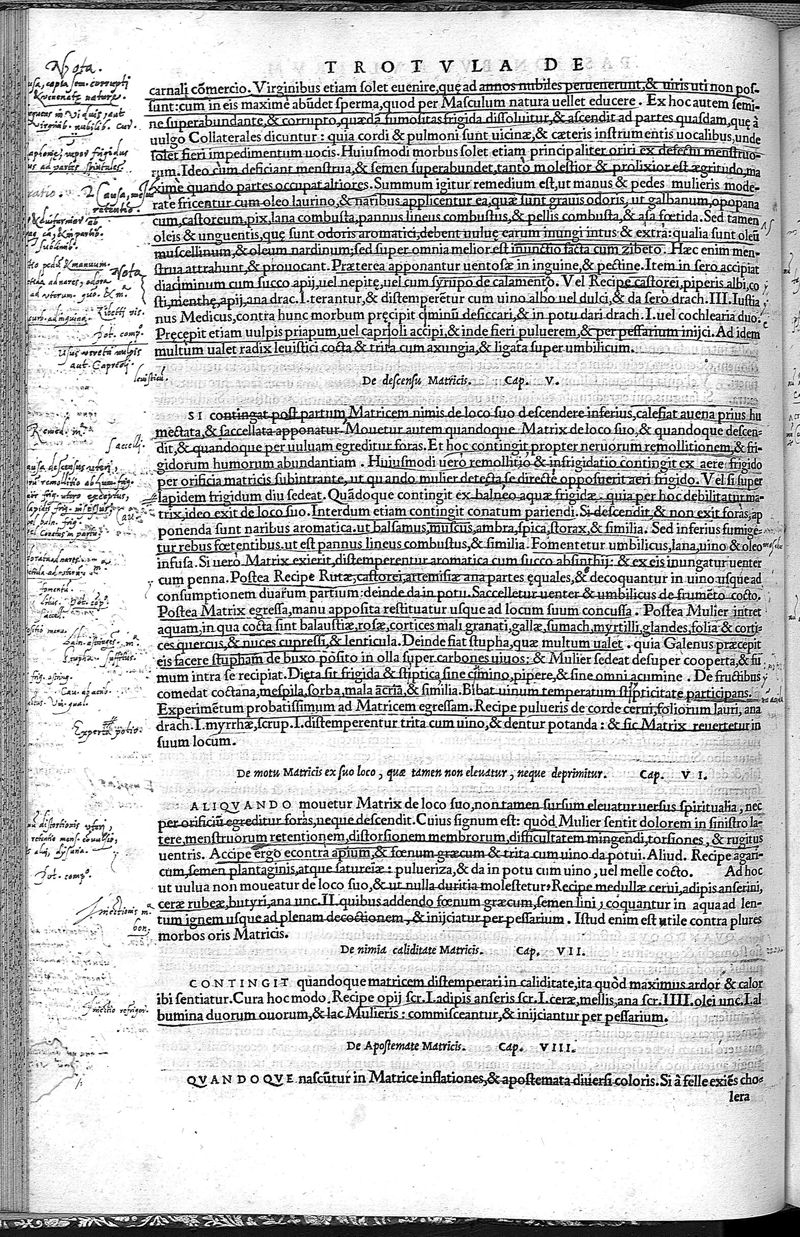 TROTVLA DE
carnali cõmercio. Virginibus etiam solet euenire, quę ad annos nubiles peruenerunt, & uiris uti non pos-
sunt: cum in eis maximè abũdet sperma, quod per Masculum natura uellet educere. Ex hoc autem semi-
ne superabundante, & corrupto, quædã fumositas frigida dissoluitur, & ascendit ad partes quasdam, quę à
uulgo Collaterales dicuntur: quia cordi & pulmoni sunt uicinæ, & cæteris instrumentis uocalibus, unde
solet fieri impedimentum uocis. Huiusmodi morbus solet etiam principaliter oriri ex defectu menstruo-
rum. Ideo cum deficiant menstrua, & semen superabundet, tantò molestior & prolixior est ægritudo, ma
xime quando partes occupat altiores. Summum igitur remedium est, ut manus & pedes mulieris mode-
rate fricentur cum oleo laurino, & naribus applicentur ea, quæ sunt grauis odoris, ut galbanum, opopana
cum, castoreum, pix, lana combusta, pannus lineus combustus, & pellis combusta, & asa fœtida. Sed tamen
oleis & unguentis, quę sunt odoris aromatici, debent uuluę earum inungi intus & extrà: qualia sunt oleũ
muscellinum, & oleum nardinum, sed super omnia melior est inunctio facta cum zibeto. Hæc enim men-
strua attrahunt, & prouocant. Præterea apponantur uentosæ in inguine, & pectine. Item in sero accipiat
diaciminum cum succo apij, uel nepitę, uel cum syrupo de calamento. Vel Recipe castorei, piperis albi, co
sti, menthę, apij, ana drac. I. terantur, & distemperẽtur cum uino albo uel dulci, & da serò drach. III. Iustia
nus Medicus, contra hunc morbum pręcipit ciminũ desiccari, & in potu dari drach. I. uel cochlearia duo.
Pręcepit etiam uulpis priapum, uel caprioli accipi, & inde fieri puluerem, & per pessarium inijci. Ad idem
multum ualet radix leuistici cocta & trita cum axungia, & ligata super umbilicum.
leuistici.
De descensu Matricis. Cap. V.
SI contingat post partum Matricem nimis de loco suo descendere inferius, calefiat auena prius hu
mectata, & saccellata apponatur. Mouetur autem quandoque Matrix de loco suo, & quandoque descen-
dit, & quandoque per uuluam egreditur foras. Et hoc contingit propter neruorum remollitionem, & fri-
gidorum humorum abundantiam. Huiusmodi uerò remollitio & infrigidatio contingit ex aere frigido
per orificia matricis subintrante, ut quando mulier detecta se directè opposuerit aeri frigido. Vel si super
lapidem frigidum diu sedeat. Quãdoque contingit ex balneo aquæ frigidæ, quia per hoc debilitatur ma-
trix, ideo exit de loco suo. Interdum etiam contingit conatum pariendi. Si descendit & non exit foras, ap
ponenda sunt naribus aromatica. ut balsamus, muscus, ambra, spica, storax, & similia. Sed inferius fumige-
tur rebus fœtentibus. ut est pannus lineus combustus, & similia. Fomentetur umbilicus, lana, uino & oleo
infusa. Si uerò Matrix exierit, distemperentur aromatica cum succo absinthij: & ex eis inungatur uenter
cum penna. Postea Recipe Rutæ, castorei, artemisiæ ana partes ęquales, & decoquantur in uino usque ad
consumptionem duarum partium: deinde da in potu. Saccelletur uenter & umbilicus de frumẽto cocto.
Postea Matrix egressa, manu apposita restituatur usque ad locum suum concussa. Postea Mulier intret
aquam, in qua cocta sint balaustiæ, rosæ, cortices mali granati, gallæ, sumach, myrtilli, glandes, folia & corti-
ces quercus, & nuces cupressi, & lenticula. Deinde fiat stupha, quæ multum ualet. quia Galenus præcepit
eis facere stupham de buxo posito in olla super carbones uiuos: & Mulier sedeat desuper cooperta, & fu
mum intra se recipiat. Dieta sit frigida & stiptica sine cimino, pipere, & sine omni acumine. De fructibus
comedat coctana, mespila, sorba, mala acria, & similia. Bibat uinum temperatum stipticitate participans.
Experimẽtum probatissimum ad Matricem egressam. Recipe pulueris de corde cerui, foliorum lauri, ana
drach. I. myrrhæ, scrup. I. distemperentur trita cum uino, & dentur potanda: & sic Matrix reuertetur in
suum locum.
De motu Matricis ex suo loco, quæ tamen non eleuatur, neque deprimitur. Cap. VI.
ALIQVANDO mouetur Matrix de loco suo, non tamen sursum eleuatur uersus spiritualia, nec
per orificiũ egreditur foras, neque descendit. Cuius signum est: quòd Mulier sentit dolorem in sinistro la-
tere, menstruorum retentionem, distorsionem membrorum, difficultatem mingendi, torsiones, & rugitus
uentris. Accipe ergo econtra apium, & fœnum græcum & trita cum uino da potui. Aliud. Recipe agari-
cum, semen plantaginis, atque satureiæ: pulueriza, & da in potu cum uino, uel melle cocto. Ad hoc
ut uulua non moueatur de loco suo, & ut nulla duritia molestetur: Recipe medullæ cerui, adipis anserini,
ceræ rubeæ, butyri, ana unc. II. quibus addendo fœnum græcum, semen lini, coquantur in aqua ad len-
tum ignem usque ad plenam decoctionem, & inijciatur per pessarium. Istud enim est utile contra plures
morbos oris Matricis.
De nimia caliditate Matricis. Cap. VII.
CONTINGIT quandoque matricem distemperari in caliditate, ita quòd maximus ardor & calor
ibi sentiatur. Cura hoc modo. Recipe opij scr. I. adipis anseris scr. I. ceræ, mellis, ana scr. IIII. olei unc. I. al
bumina duorum ouorum, & lac Mulieris: commisceantur, & inijciantur per pessarium.
De Apostemate Matricis. Cap. VIII.
QVANDOQVE nascũtur in Matrice inflationes, & apostemata diuersi coloris. Si à felle exiẽs cho-
lera
Nota.
Nota